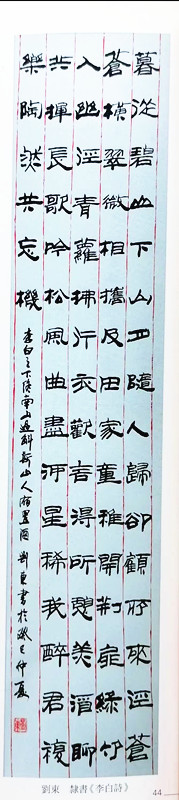 暮從碧山下山月隨人歸卻顧所來徑蒼
蒼橫翠微相攜及田家童稚開荊扉綠竹
入幽徑青蘿拂行衣歡言得所憩美酒聊
共揮長歌吟松風曲盡河星稀我醉君復
樂陶然共忘機 李白之下終南山過斛斯山人宿置酒 劉東書於癸巳仲夏
劉東 隸書《李白詩》
44